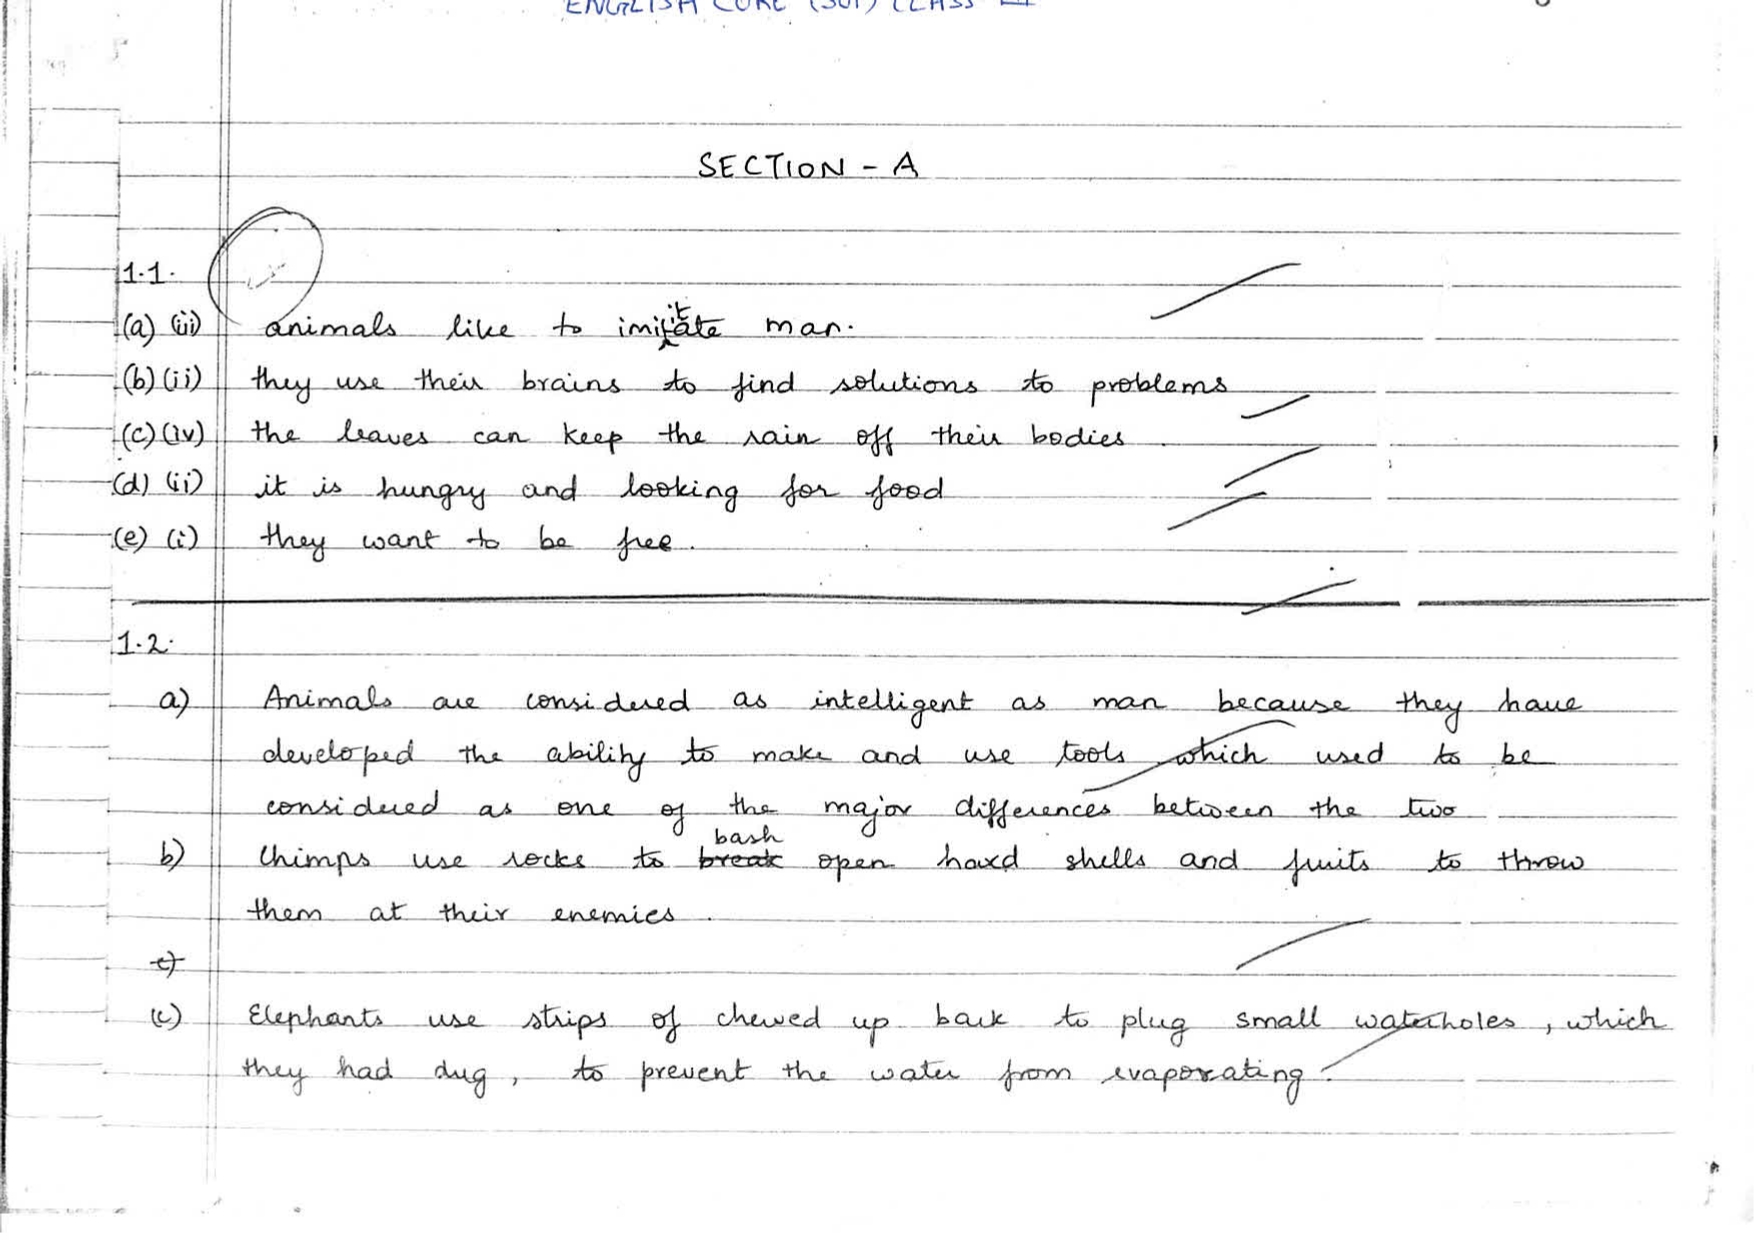 ENGLISH CORE (301) CLASS XII
SECTION - A
1.1.
(a) (iii) animals like to imitate man.
(b) (ii) they use their brains to find solutions to problems
(c) (iv) the leaves can keep the rain off their bodies.
(d) (ii) it is hungry and looking for food
(e) (i) they want to be free.
1.2.
a) Animals are considered as intelligent as man because they have
developed the ability to make and use tools which used to be
considered as one of the major differences between the two
b) Chimps use rocks to break bash open hard shells and fruits to throw
them at their enemies.
c)
(c) Elephants use strips of chewed up bark to plug small waterholes, which
they had dug, to prevent the water from evaporating.